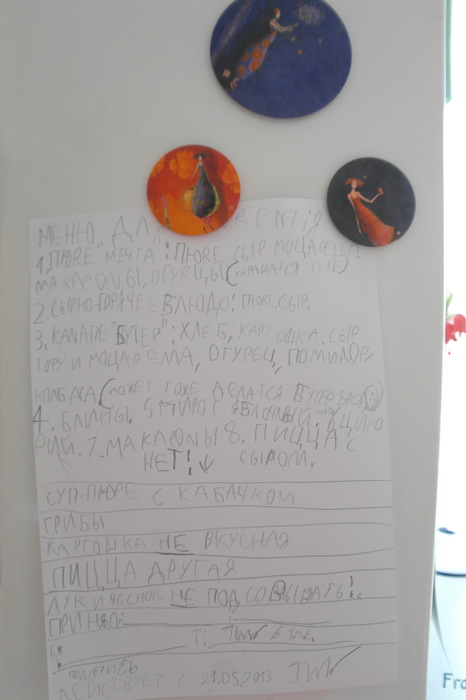 МЕНЮ ДЛЯ RENTIЯ
1. ПЮRE "МЕЧТА": ПЮRE, СЫР МОЦАРЕЛА,
МАКАРОNЫ, ОГУРЦЫ
2. СЫРНО-ГОРЯЧЕЕ БЛЮДО: ПЮRE, СЫR.
3. КАNАПЕ "БУТЕР": ХЛЕБ, КАРТОШКА, СЫР
ТОРУ И МОЦАРЕМА, ОГУРЕЦ, ПОМИДОР
КОЛБАСА, (МОЖЕТ ТОЖЕ ДЕЛАТСЯ В БУТЕРБRОD:)
4. БЛИНЫ. 5 ПИРОГ ЯБЛОЧНЫЙ. 6 ЦИЮ
РИЙ. 7. МАКАРОNЫ 8. ПИЦЦА С
НЕТ!↓ СЫРОМ.
СУП-ПЮРЕ С КАБАЧКОМ
ГРИБЫ
КАРТОШКА НЕ ВКУСНАЯ
ПИЦЦА ДРУГАЯ
ЛУК И ЧЕСНОК НЕ ПОДСОВЫВАТЬ!
ПРИНЯЛ:
Т:
ПОДПИСЬ
ДЕЙСТВУЕТ С 21.05.2013
Fro